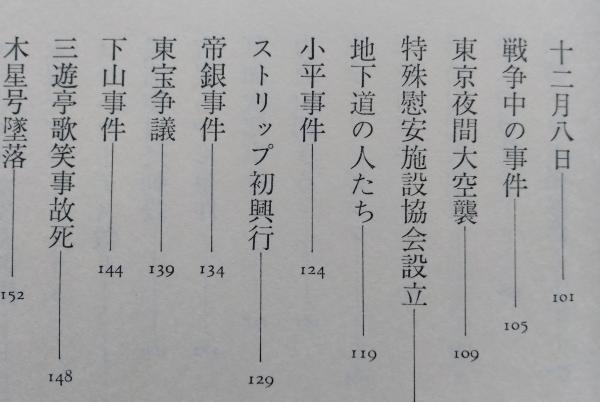 十二月八日 101
戦争中の事件 105
東京夜間大空襲 109
特殊慰安施設協会設立
地下道の人たち 119
小平事件 124
ストリップ初興行 129
帝銀事件 134
東宝争議 139
下山事件 144
三遊亭歌笑事故死 148
木星号墜落 152